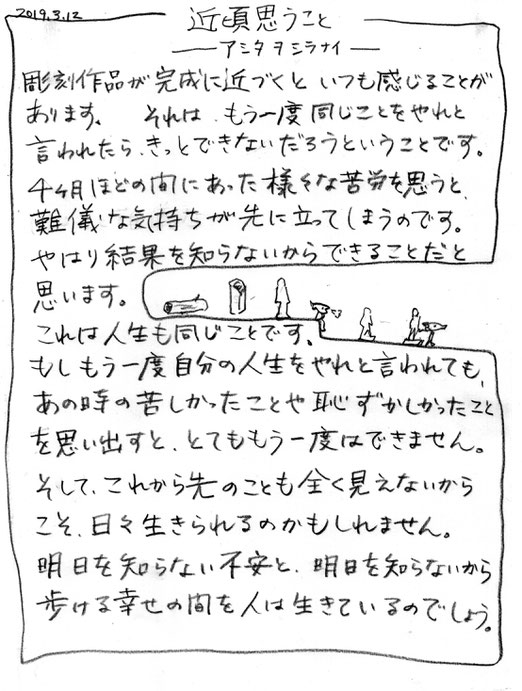 2019.3.12
近頃思うこと
アシタヲシラナイ
彫刻作品が完成に近づくと いつも感じることが
あります。 それは、もう一度同じことをやれと
言われたら、きっとできないだろうということです。
4ヶ月ほどの間にあった様々な苦労を思うと、
難儀な気持ちが先に立ってしまうのです。
やはり結果を知らないからできることだと
思います。
これは人生も同じことです、
もしもう一度自分の人生をやれと言われても、
あの時の苦しかったことや恥ずかしかったこと
を思い出すと、とてももう一度はできません。
そして、これから先のことも全く見えないから
こそ、日々生きられるのかもしれません。
明日を知らない不安と、明日を知らないから
歩ける幸せの間を人は生きているのでしょう。